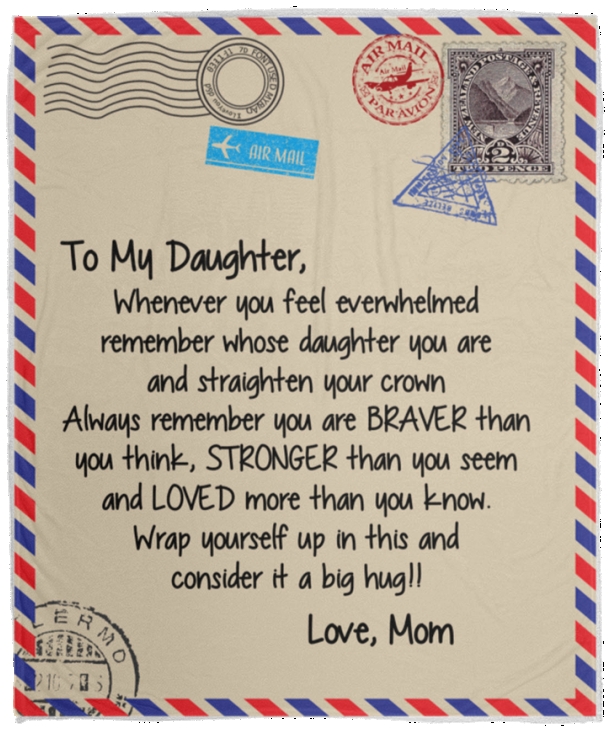 AIR MAIL
Air Mail
PAR AVION
AIR MAIL
2
TWO PENCE
To My Daughter,
Whenever you feel everwhelmed
remember whose daughter you are
and straighten your crown
Always remember you are BRAVER than
you think, STRONGER than you seem
and LOVED more than you know.
Wrap yourself up in this and
consider it a big hug!!
Love, Mom
LERMO